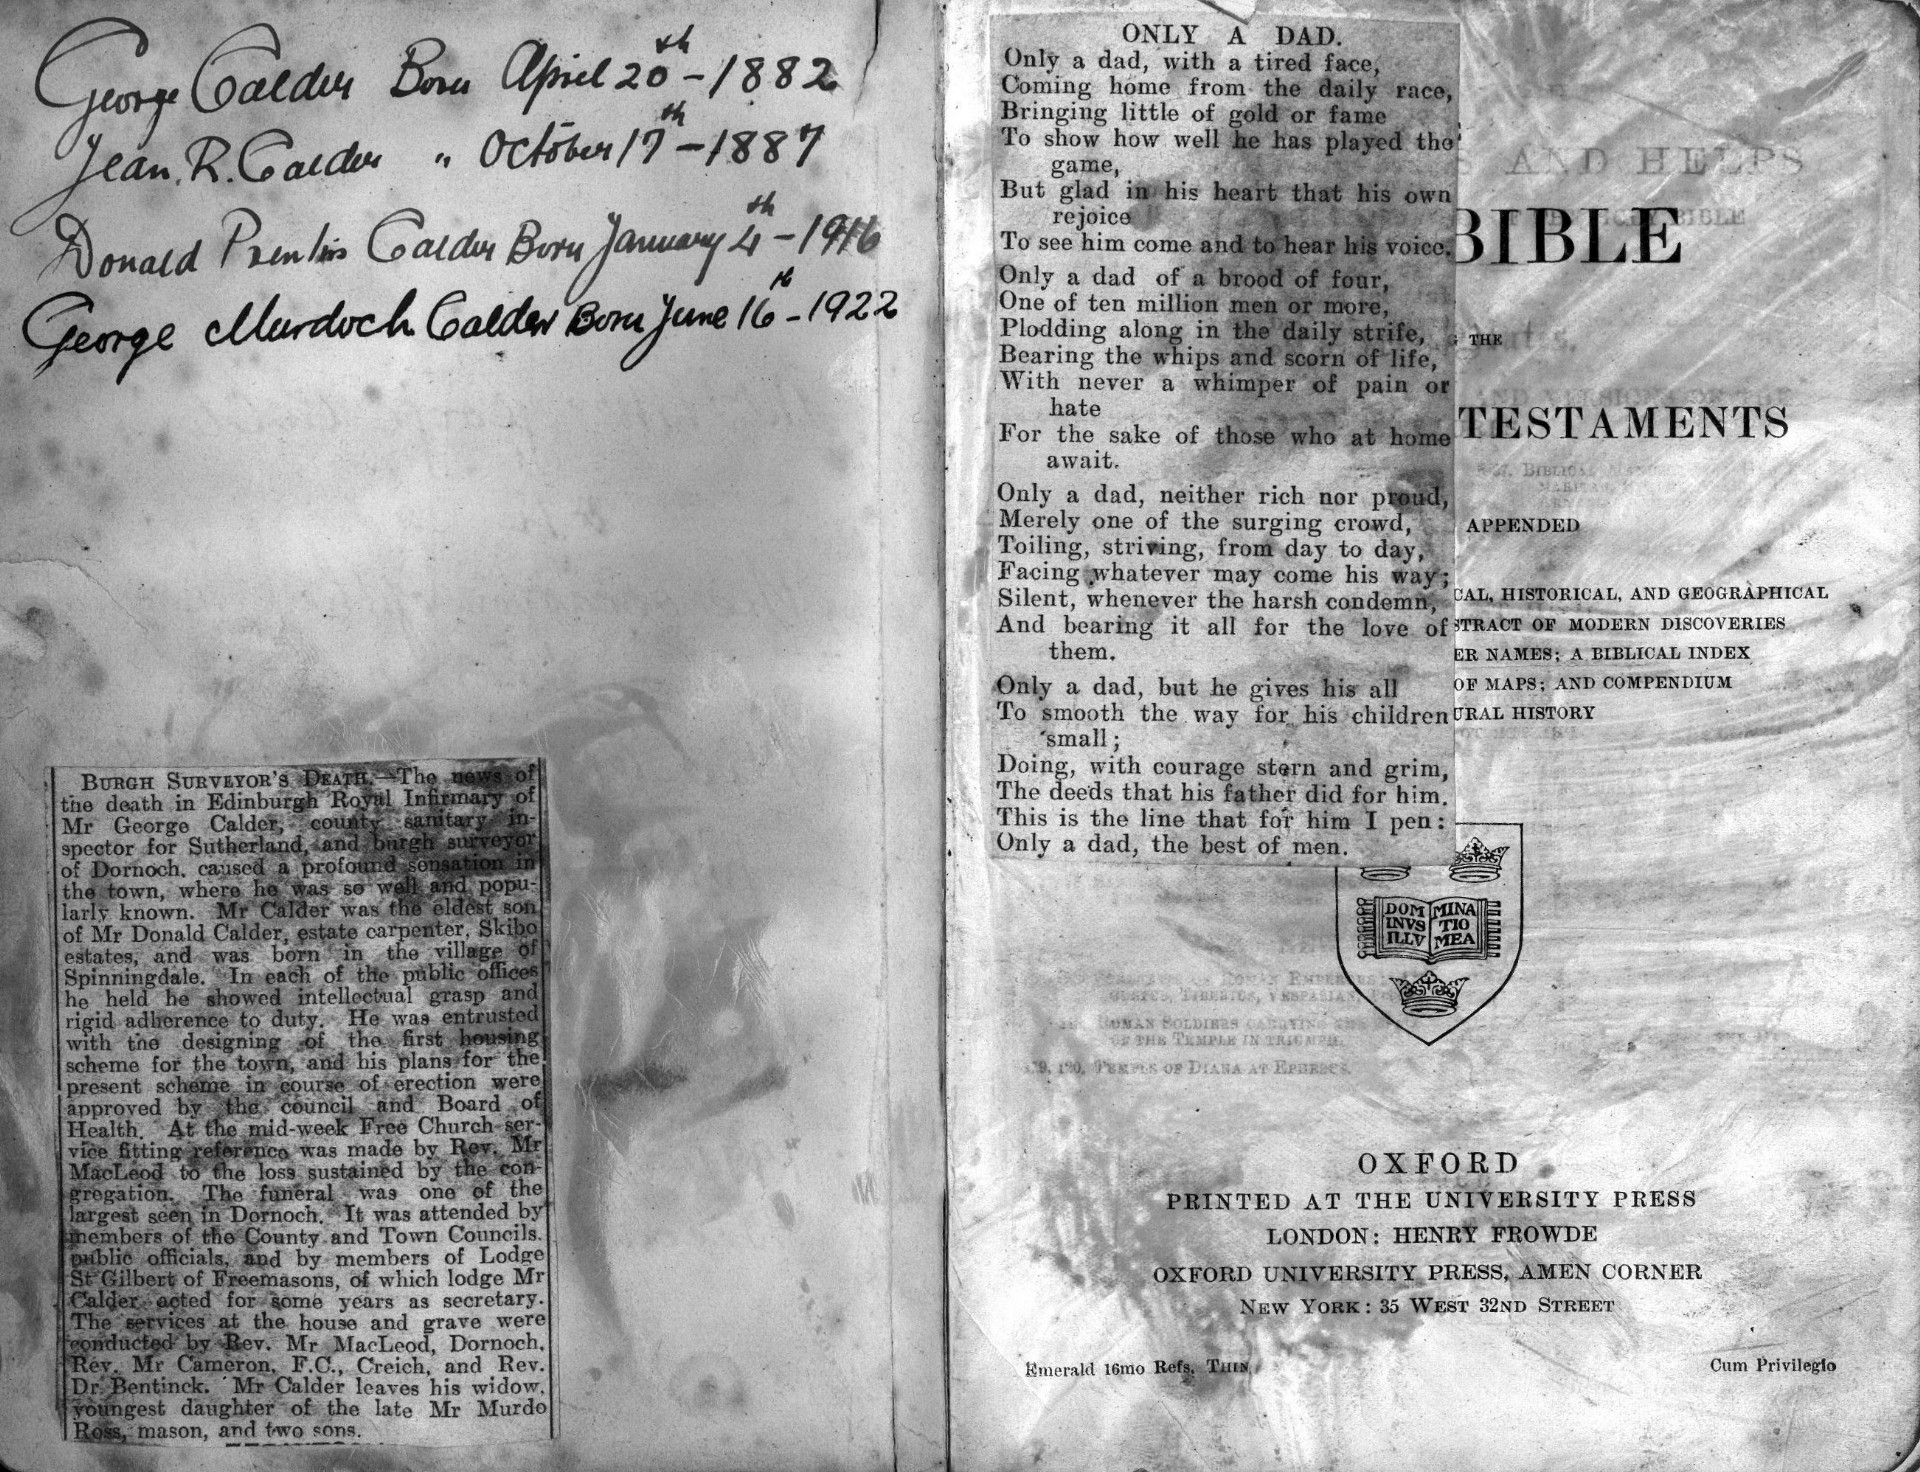 George Calder Born April 20th - 1882
Jean. R. Calder " October 17th - 1887
Donald Prentis Calder Born January 4th - 1916
George Murdoch Calder Born June 16th - 1922
BURGH SURVEYOR'S DEATH.—The news of
the death in Edinburgh Royal Infirmary of
Mr George Calder, county sanitary in-
spector for Sutherland, and burgh surveyor
of Dornoch, caused a profound sensation in
the town, where he was so well and popu-
larly known. Mr Calder was the eldest son
of Mr Donald Calder, estate carpenter, Skibo
estates, and was born in the village of
Spinningdale. In each of the public offices
he held he showed intellectual grasp and
rigid adherence to duty. He was entrusted
with the designing of the first housing
scheme for the town, and his plans for the
present scheme in course of erection were
approved by the council and Board of
Health. At the mid-week Free Church ser-
vice fitting reference was made by Rev. Mr
MacLeod to the loss sustained by the con-
gregation. The funeral was one of the
largest seen in Dornoch. It was attended by
members of the County and Town Councils,
public officials, and by members of Lodge
St Gilbert of Freemasons, of which lodge Mr
Calder acted for some years as secretary.
The services at the house and grave were
conducted by Rev. Mr MacLeod, Dornoch,
Rev. Mr Cameron, F.C., Creich, and Rev.
Dr Bentinck. Mr Calder leaves his widow,
youngest daughter of the late Mr Murdo
Ross, mason, and two sons.
ONLY A DAD.
Only a dad, with a tired face,
Coming home from the daily race,
Bringing little of gold or fame
To show how well he has played the
game,
But glad in his heart that his own
rejoice
To see him come and to hear his voice.
Only a dad of a brood of four,
One of ten million men or more,
Plodding along in the daily strife,
Bearing the whips and scorn of life,
With never a whimper of pain or
hate
For the sake of those who at home
await.
Only a dad, neither rich nor proud,
Merely one of the surging crowd,
Toiling, striving, from day to day,
Facing whatever may come his way;
Silent, whenever the harsh condemn,
And bearing it all for the love of
them.
Only a dad, but he gives his all
To smooth the way for his children
small;
Doing, with courage stern and grim,
The deeds that his father did for him.
This is the line that for him I pen:
Only a dad, the best of men.
S AND HELPS
BIBLE
THE
TESTAMENTS
APPENDED
CAL, HISTORICAL, AND GEOGRAPHICAL
STRACT OF MODERN DISCOVERIES
ER NAMES; A BIBLICAL INDEX
OF MAPS; AND COMPENDIUM
URAL HISTORY
DOM MINA
INVS TIO
ILLV MEA
ROMAN SOLDIERS CARRYING THE
OF THE TEMPLE IN TRIUMPH.
TEMPLE OF DIANA AT EPHESUS.
OXFORD
PRINTED AT THE UNIVERSITY PRESS
LONDON: HENRY FROWDE
OXFORD UNIVERSITY PRESS, AMEN CORNER
NEW YORK: 35 WEST 32ND STREET
Emerald 16mo Refs. THIN
Cum Privilegio